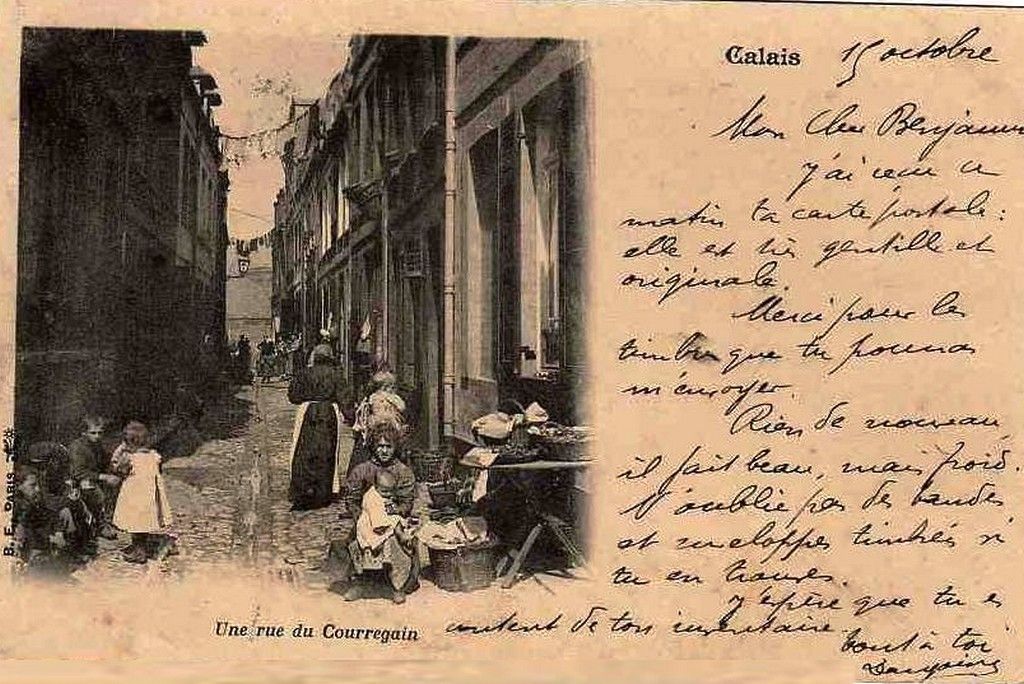 Calais 15 octobre
Mon Cher Benjamin
J'ai reçu ce
matin ta carte postale :
elle est très gentille et
originale.
Merci pour les
timbres que tu pourras
m'envoyer.
Rien de nouveau,
il fait beau, mais froid.
N'oublie pas de bandes
et enveloppes timbrées si
tu en trouves.
J'espère que tu es
content de ton inventaire.
tout à toi
Une rue du Courregain
B. F. PARIS